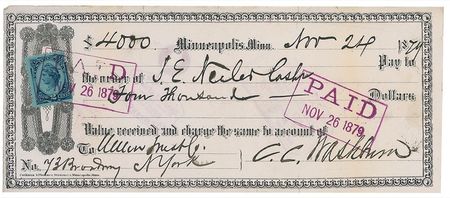 $ 4000. Minneapolis, Minn. Nov 24 1879
Pay to
the order of J. E. Cashr
Four Thousand Dollars
Value received and charge the same to account of
To
No. 73 Broadway N York C. C. Washburn
PAID
NOV 26 1879
PAID
NOV 26 1879